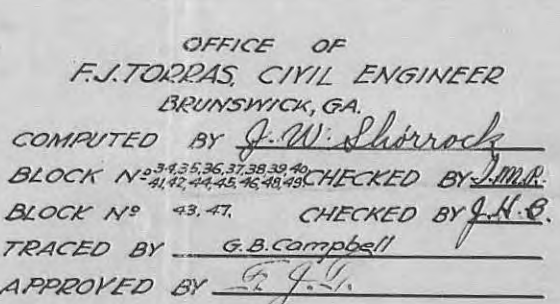 OFFICE OF
F.J. TORRAS, CIVIL ENGINEER
BRUNSWICK, GA.
COMPUTED BY J. W. Shorrock
BLOCK Nº 34,35,36,37,38,39,40 41,42,44,45,46,48,49 CHECKED BY J.M.R.
BLOCK Nº 43, 47, CHECKED BY J.H.B.
TRACED BY G.B. Campbell
APPROVED BY F. J. T.